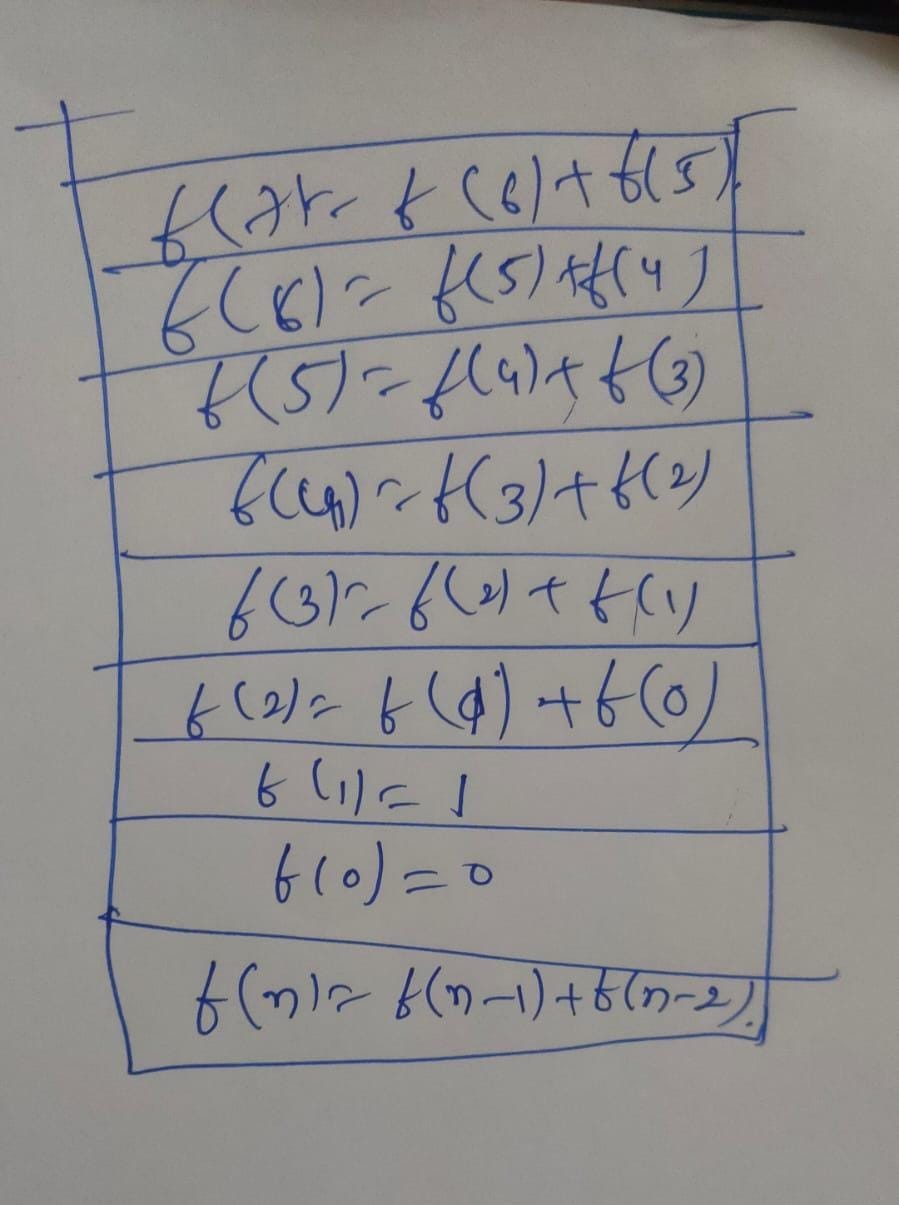 f(7) = f(6) + f(5)
f(6) = f(5) + f(4)
f(5) = f(4) + f(3)
f(4) = f(3) + f(2)
f(3) = f(2) + f(1)
f(2) = f(1) + f(0)
f(1) = 1
f(0) = 0
f(n) = f(n-1) + f(n-2).